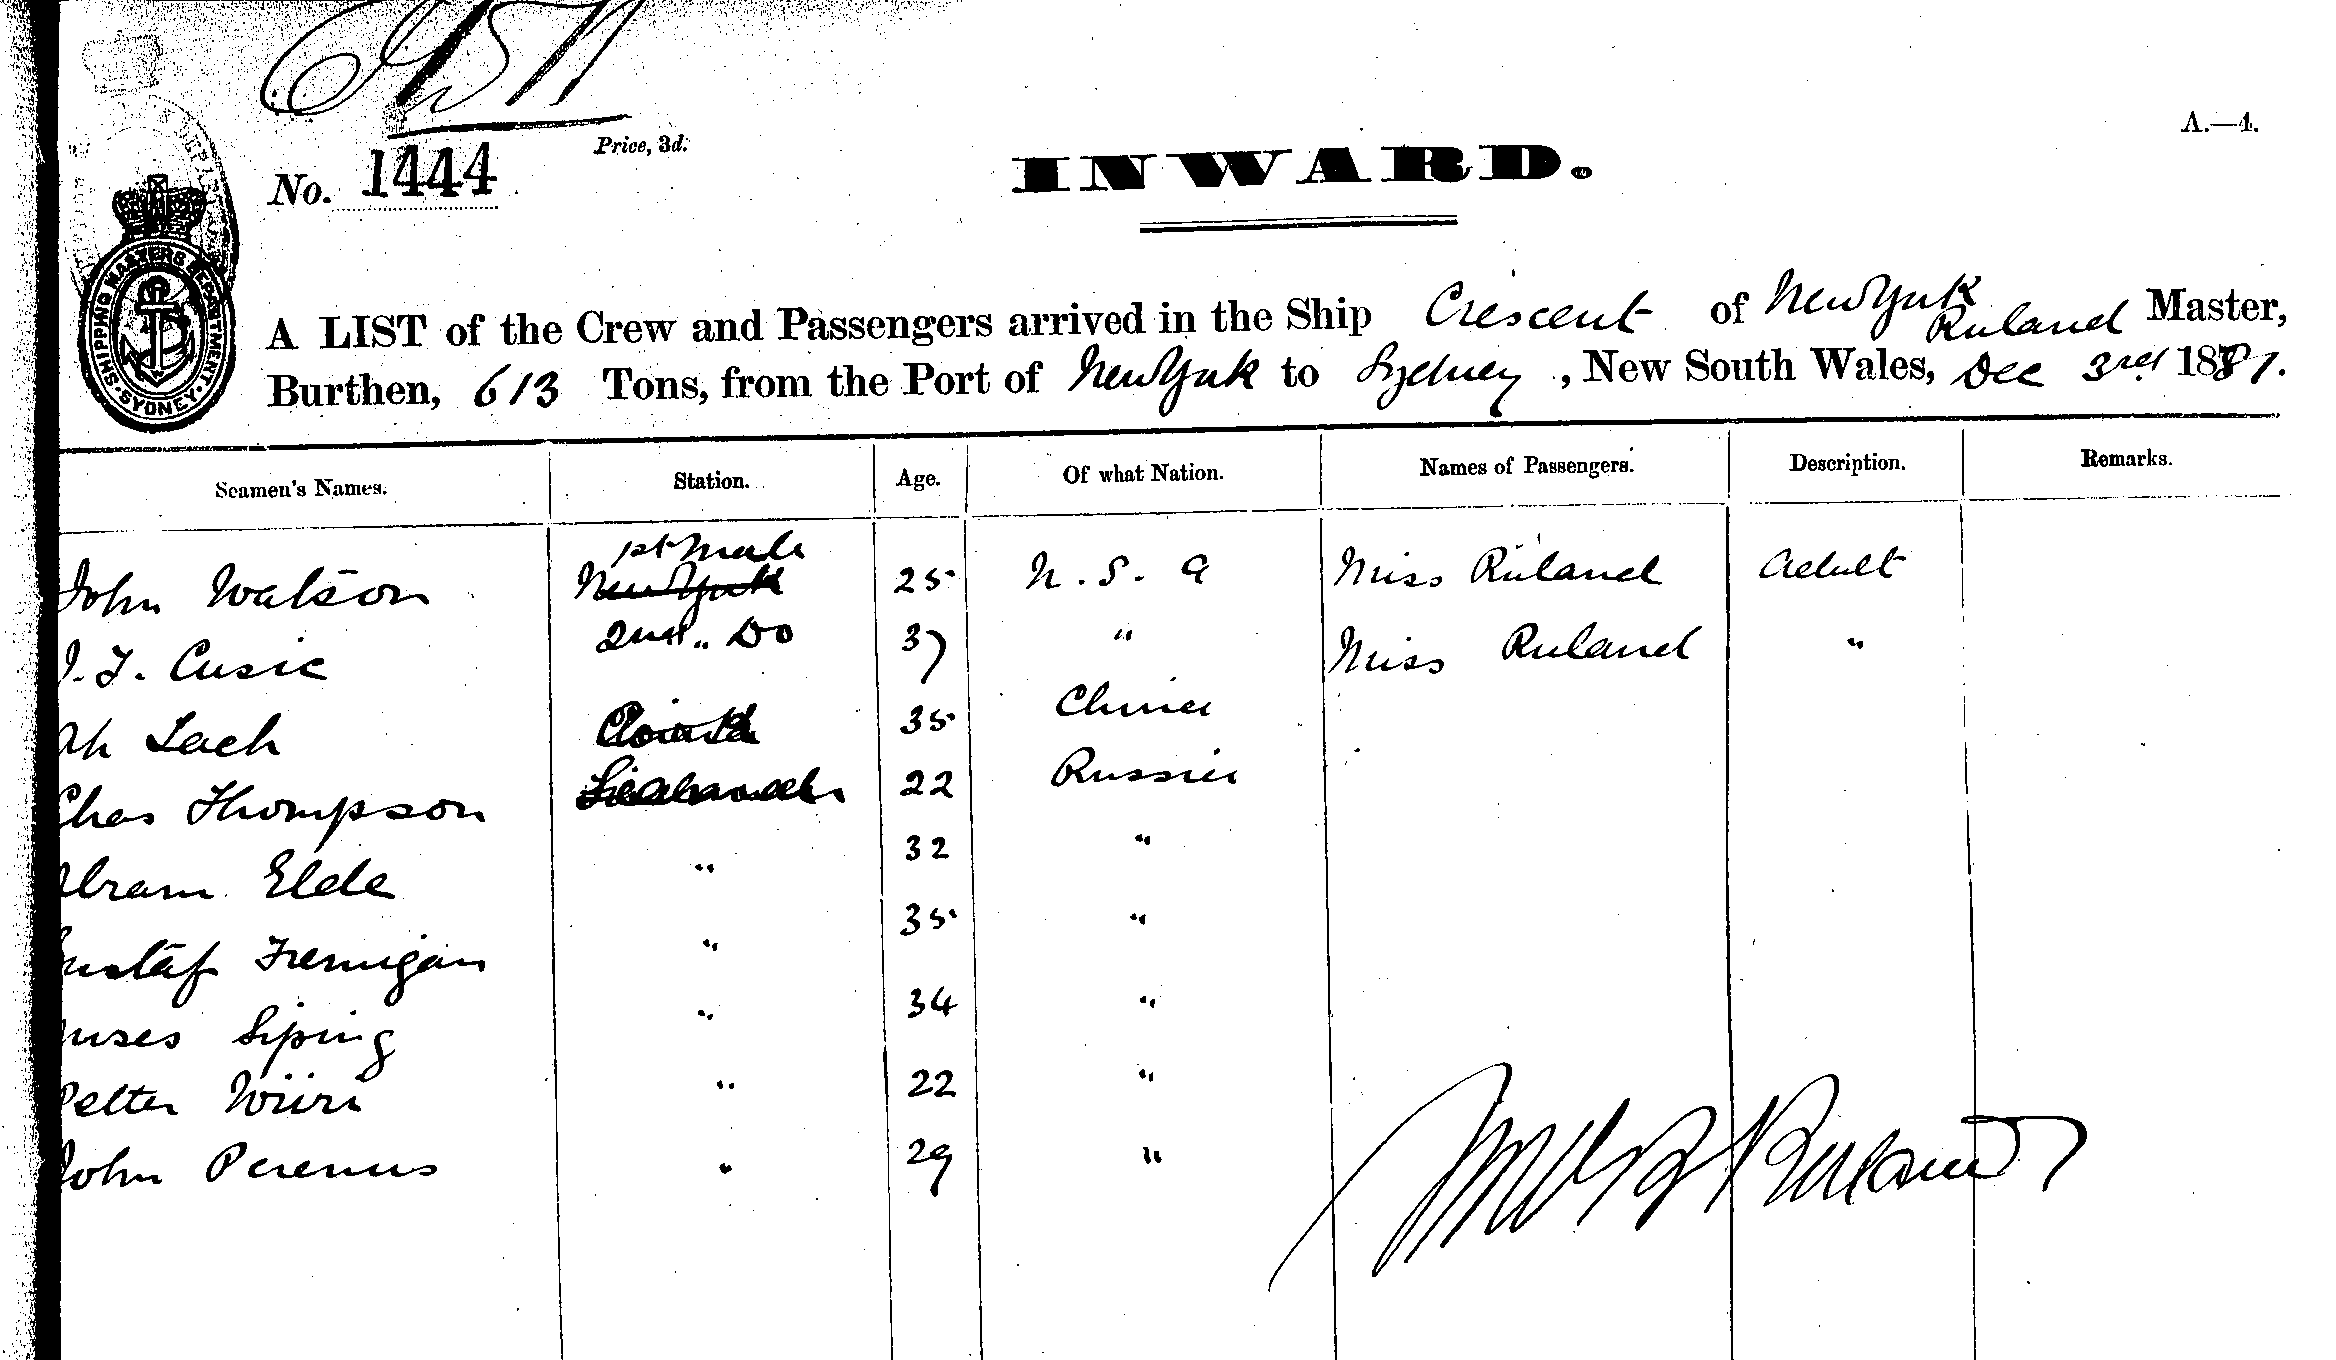 Price, 3d.
A.—4.
No. 1444
INWARD.
SHIPPING MASTERS DEPARTMENT. SYDNEY
A LIST of the Crew and Passengers arrived in the Ship Crescent of New York Ruland Master,
Burthen, 613 Tons, from the Port of New York to Sydney, New South Wales, Dec 3rd 1881.
Seamen's Names. Station. Age. Of what Nation. Names of Passengers. Description. Remarks.
John Watson 1st Mate New York 25 U. S. A Miss Ruland Adult
J. F. Cusic 2nd " Do 37 " Miss Ruland "
Ah Lach 35 China
Chas Thompson 22 Russia
Abram Elde " 32 "
Gustaf " 35 "
Siping " 34 "
Petter " 22 "
John " 29 "
Ruland